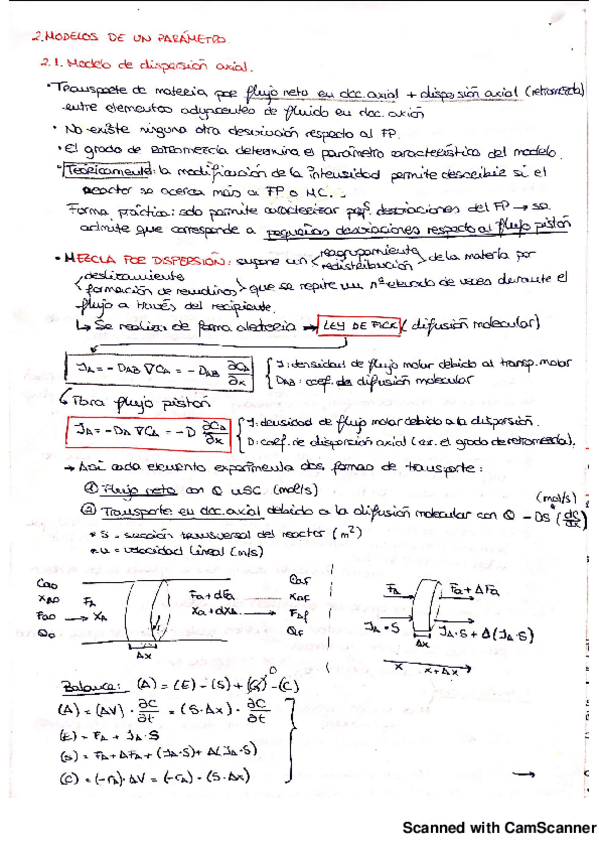 2. MODELOS DE UN PARÁMETRO
2.1. Modelo de dispersión axial.
• Transporte de materia por flujo neto en dcc. axial + dispersión axial (retromezcla)
entre elementos adyacentes de fluido en dcc. axial
• No existe ninguna otra desviación respecto al FP.
• El grado de retromezcla determina el parámetro característico del modelo.
• Teóricamente: la modificación de la intensidad permite describir si el
reactor se acerca más a FP o MC.
Forma práctica: solo permite caracterizar peqs. desviaciones del FP → se
admite que corresponde a pequeñas desviaciones respecto al flujo pistón
• MEZCLA POR DISPERSIÓN: supone un < reagrupamiento
redistribución > de la materia por
< deslizamiento
formación de remolinos > que se repite un nº elevado de veces durante el
flujo a través del recipiente.
↳ Se realiza de forma aleatoria → LEY DE FICK (difusión molecular)
JA = - DAB ∇CA = - DAB ∂CA/∂x { J: densidad de flujo molar debido al transp. molar
DAB: coef. de difusión molecular
↳ Para flujo pistón
JA = - DA ∇CA = - D ∂CA/∂x { J: densidad de flujo molar debido a la dispersión.
D: coef. de dispersión axial (car. el grado de retromezcla).
→ Así cada elemento experimenta dos formas de transporte:
① Flujo neto con Q uSC (mol/s)
② Transporte en dcc. axial debido a la difusión molecular con Q - DS (dC/dx) (mol/s)
* S = sección transversal del reactor (m²)
* u = velocidad lineal (m/s)
CA0 XA0 FA0 Q0
FA → XA
FA + dFA
XA + dXA
Δx
CAf XAf FAf Qf
FA JA·S
FA + ΔFA
JA·S + Δ(JA·S)
Δx
x x+Δx
Balance: (A) = (E) - (S) + (G)⁰ - (C)
(A) = (ΔV) · ∂C/∂t = (S·Δx) · ∂C/∂t
(E) = FA + JA·S
(S) = FA + ΔFA + (JA·S) + Δ(JA·S)
(C) = (-rA)·ΔV = (-rA) · (S·Δx)
→
Scanned with CamScanner